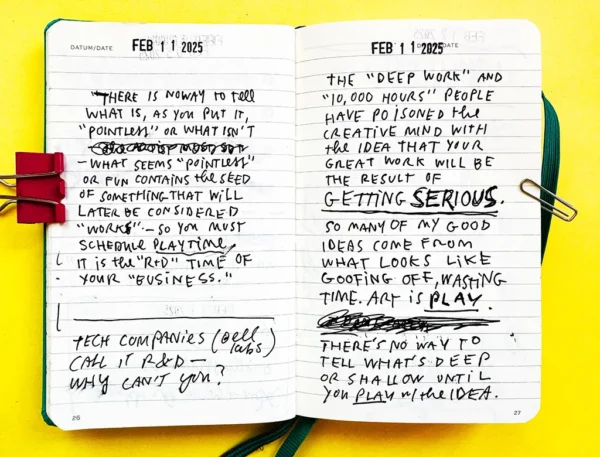 DATUM/DATE FEB 11 2025
"THERE IS NO WAY TO TELL
WHAT IS, AS YOU PUT IT,
"POINTLESS" OR WHAT ISN'T
— WHAT SEEMS "POINTLESS"
OR FUN CONTAINS the SEED
OF SOMETHING THAT WILL
LATER BE CONSIDERED
"WORK" — SO YOU MUST
SCHEDULE PLAYTIME,
IT IS the "R+D" TIME OF
YOUR "BUSINESS."
TECH COMPANIES (Bell
labs)
CALL IT R&D —
WHY CAN'T YOU?
26
FEB 11 2025 DATE
THE "DEEP WORK" AND
"10,000 HOURS" PEOPLE
HAVE POISONED the
CREATIVE MIND WITH
the IDEA THAT YOUR
GREAT WORK WILL BE
THE RESULT OF
GETTING SERIOUS.
SO MANY OF MY GOOD
IDEAS COME FROM
WHAT LOOKS LIKE
GOOFING OFF, WASTING
TIME. ART IS PLAY.
THERE'S NO WAY TO
TELL WHAT'S DEEP
OR SHALLOW UNTIL
YOU PLAY w/ the IDEA.
27